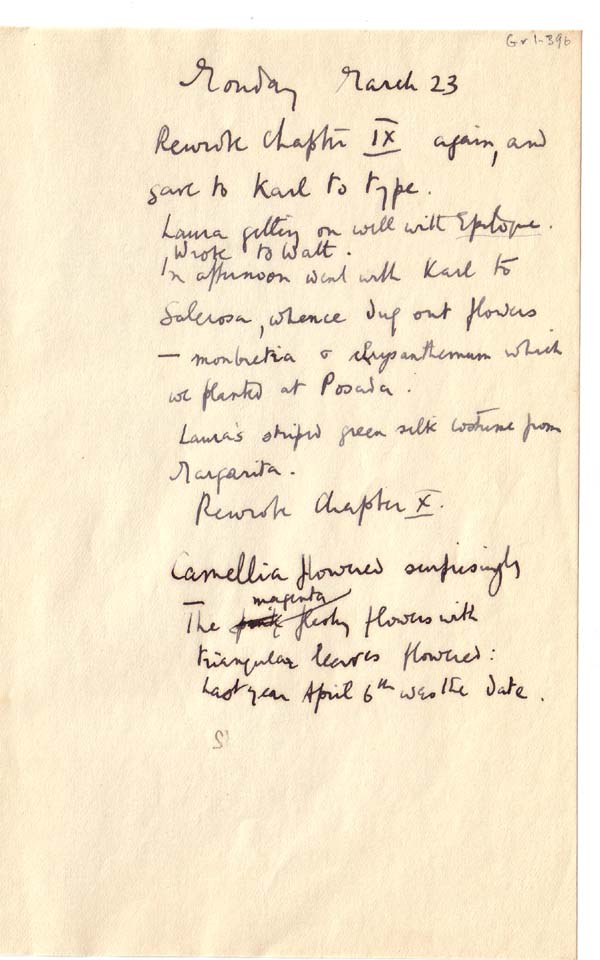 Gr1-396
Monday March 23
Rewrote Chapter IX again, and
gave to Karl to type.
Laura getting on well with Epilogue.
Wrote to Watt.
In afternoon went with Karl to
Salerosa, whence dug out flowers
— monbretia & chrysanthemum which
we planted at Posada.
Laura's striped green silk costume from
Margarita.
Rewrote Chapter X.
Camellia flowered surprisingly
— magenta
The pink fleshy flowers with
triangular leaves flowered:
Last year April 6th was the date.